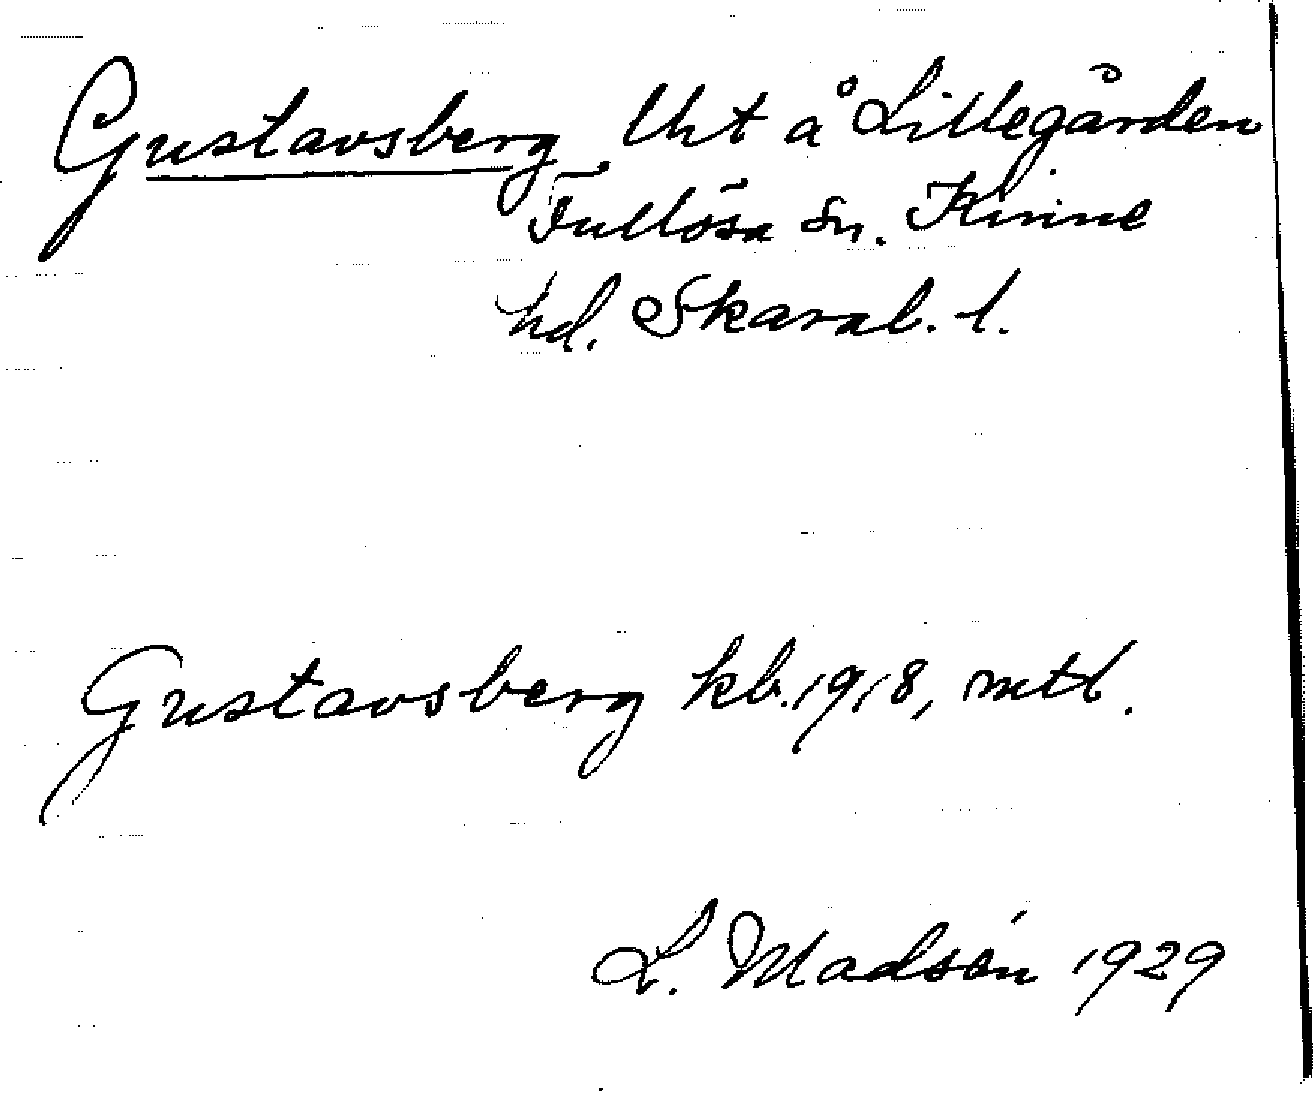 Gustavsberg. Uht å Lillegården
Fullösa sn. Kinne
hd. Skarab. l.
Gustavsberg kb. 1918, mtl.
L. Madsén 1929